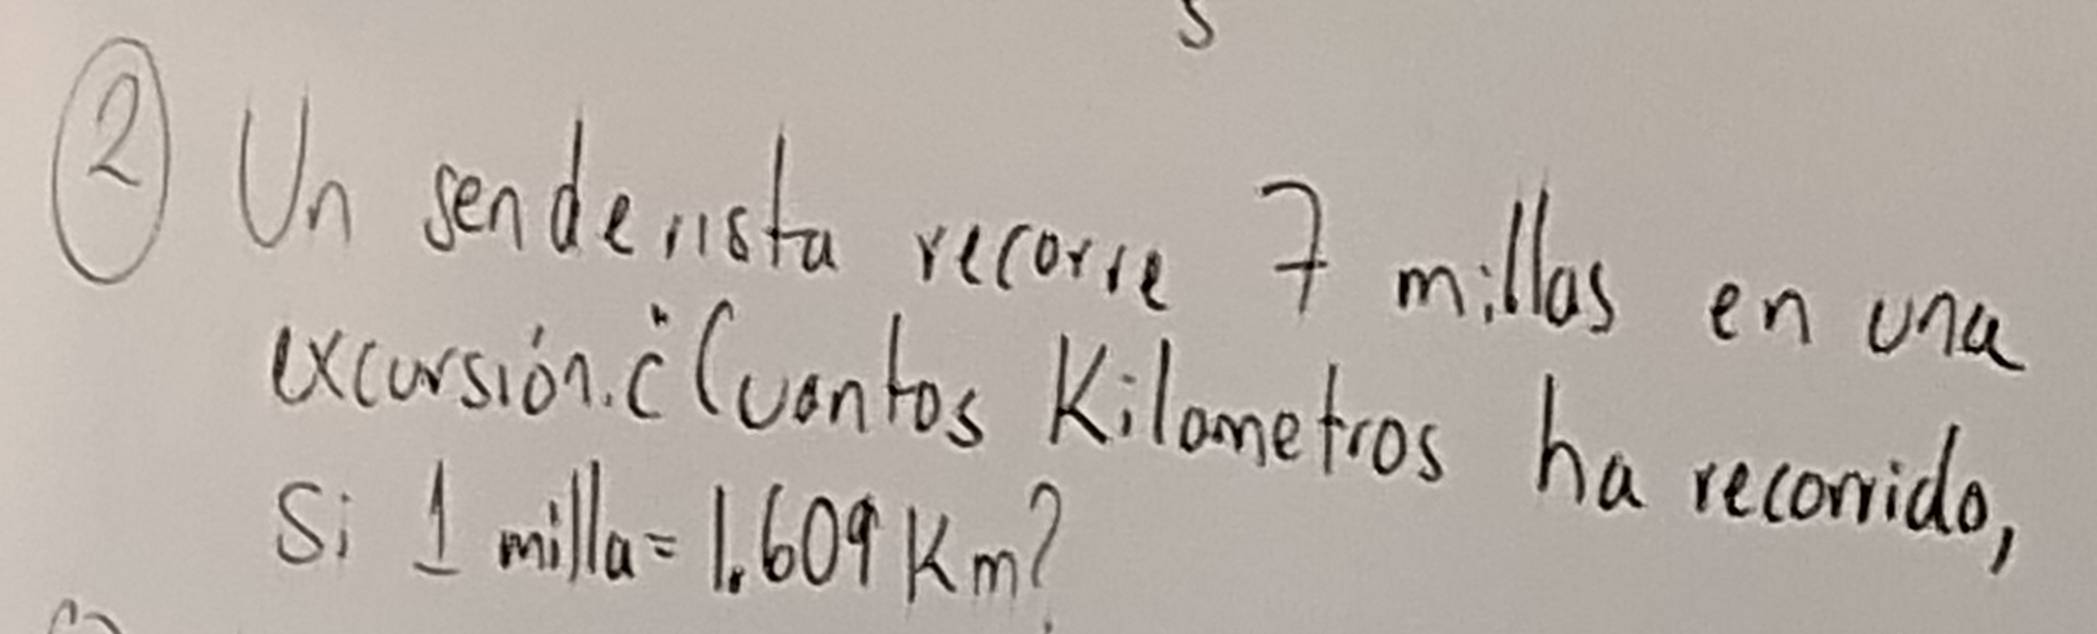 s
② Un senderista recorre 7 millas en una
excursión. ¿Cuantos Kilometros ha recorrido,
Si 1 milla = 1.609 Km?